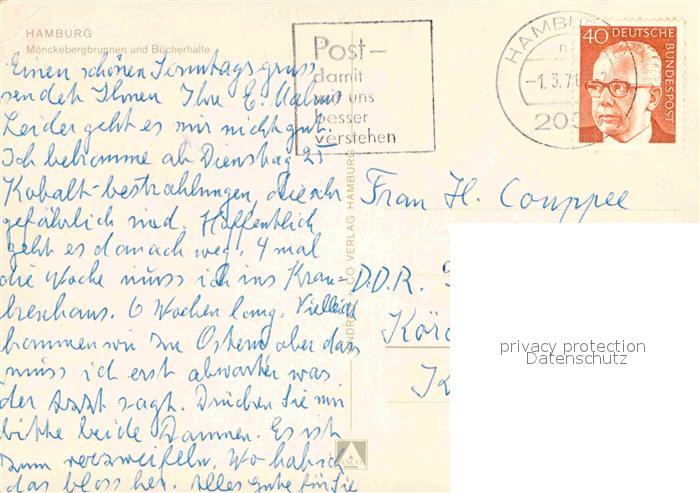 HAMBURG
Mönckebergbrunnen und Bücherhalle
Einen schönen Sonntagsgruss
sendet Ihnen Ihre E.
Leider geht es mir nicht gut.
Ich bekomme ab Dienstag 21
Kobalt-bestrahlungen, die sehr
gefährlich sind. Hoffentlich
geht es danach weg. 4 mal
die Woche muss ich ins Kran-
kenhaus. 6 Wochen lang. Vielleicht
kommen wir zu Ostern aber das
muss ich erst abwarten was
der Arzt sagt. Drücken Sie mir
bitte beide Daumen. Es ist
zum verzweifeln. Wo hab ich
das bloss her. Alles gute für Sie
Post-
damit
wir uns
besser
verstehen
HAMBURG
-1.3.7
20
40 DEUTSCHE
BUNDESPOST
Frau H. Couppee
D.D.R.
CO VERLAG HAMBURG
privacy protection
Datenschutz